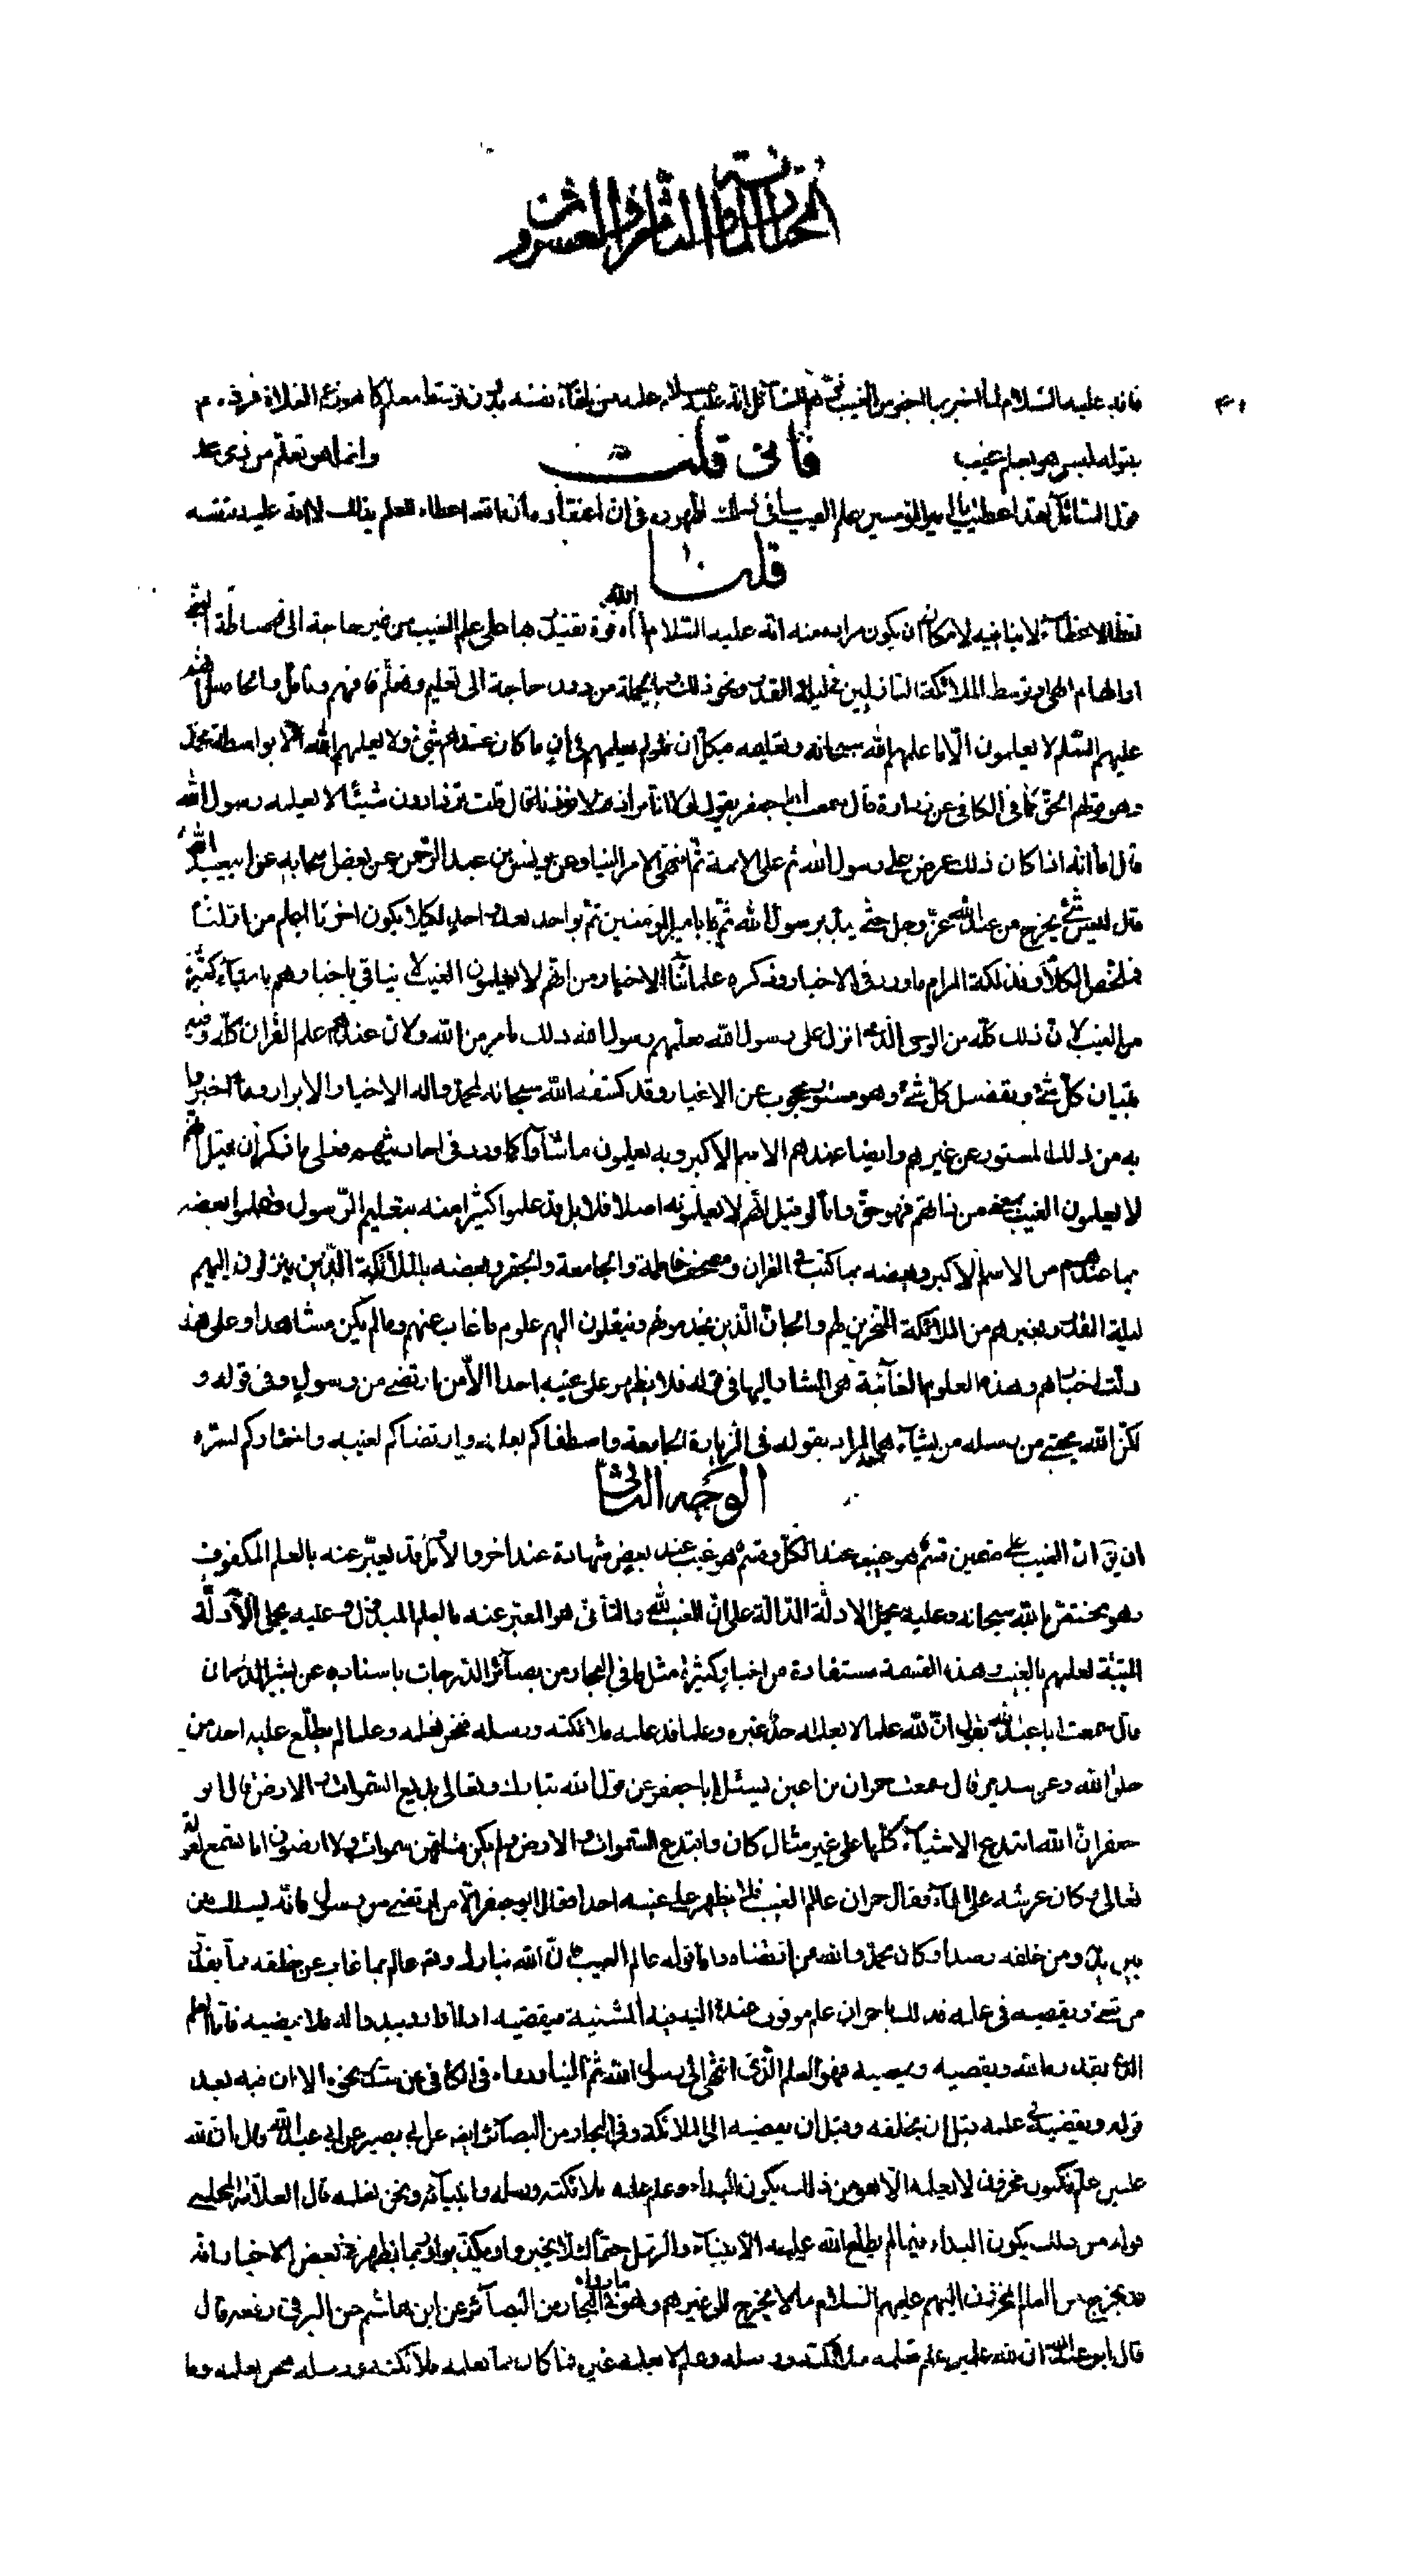 المختار المأة و الثامن و العشرون
فانه عليه السلام لما اخبر بالخبر من الغيب توهم السائل انه عليه السلام علمه من تلقاء نفسه بدون توسط معلم كما هو زعم الغلاة فرده
بقوله ليس هو بعلم غيب وانما هو تعلم من ذى علم فان قلت
قول السائل لقد اعطيت يا امير المؤمنين علم الغيب ينافى ذلك لظهوره فى ان اعتقاده ان الله اعطاه العلم بذلك لا انه عليه بنفسه
قلنا
لفظ الاعطاء لا ينافيه لامكان ان يكون مراده منه انه عليه السلام اتاه الله قوة يقتدر بها على علم الغيب من غير حاجة الى وساطة النبى
او الهام الهى او توسط الملائكة النازلين فى ليلة القدر ونحو ذلك وبالجملة من دون حاجة الى تعليم وتعلم فافهم وتأمل والحاصل انهم
عليهم السلم لا يعلمون الا ما علمهم الله سبحانه وتعليمه فى كل آن لو لم يعلمهم فى آن ما كان عندهم شىء ولا يعلمهم الله الا بواسطة محمد
وهو قولهم الحق كما فى الكافى عن زرارة قال سمعت ابا جعفر يقول لولا انا نزداد لانفدنا قال قلت تزدادون شيئا لا يعلمه رسول الله
قال اما انه اذا كان ذلك عرض على رسول الله ثم على الائمة ثم انتهى الامر الينا وعن يونس بن عبد الرحمن عن بعض اصحابه عن ابيعبد الله
قال ليس شىء يخرج من عند الله عز وجل حتى يبدء برسول الله ثم بامير المؤمنين ثم بواحد بعد واحد لكيلا يكون اخرنا اعلم من اولنا
فملخص الكلام وفذلكة المرام ما ورد فى الاخبار وذكره علمائنا الاخيار من انهم لا يعلمون الغيب لا ينافى باخبارهم باشياء كثيرة
من الغيب لان ذلك كله من الوحى الذى انزل على رسول الله فعلمهم رسول الله ذلك بامر من الله ولان عندهم علم القران كله وفيه
تبيان كل شىء وتفصيل كل شىء وهو مستور محجوب عن الاغيار وقد كشفه الله سبحانه لمحمد واله الاخيار الابرار وما اخبروا
به من ذلك المستور عن غيرهم وايضا عندهم الاسم الاكبر وبه يعلمون ما شاؤا كما ورد فى احاديثهم فعلى ما ذكر ان قيل انهم
لا يعلمون الغيب بمعنى من ذاتهم فهو حق واما لو قيل انهم لا يعلمونه اصلا فلا بل قد علموا كثيرا منه بتعليم الرسول وعلموا بعضه
بما عندهم من الاسم الاكبر وبعضه بما كتب فى القران ومصحف فاطمة والجامعة والجفر وبعضه بالملائكة الذين ينزلون اليهم
ليلة القدر وبغيرهم من الملائكة المسخرين لهم والجان الذين يخدمونهم وينقلون اليهم علوم ما غاب عنهم وما لم يكن مشاهدا وعلى هذه
دلت اخبارهم وهذه العلوم الغائبة هى المشار اليها فى قوله فلا يظهر على غيبه احدا الا من ارتضى من رسول وفى قوله و
لكن الله يجتبى من رسله من يشاء هى المراد بقوله فى الزيارة الجامعة واصطفاكم بعلمه وارتضاكم لغيبه واختاركم لسره
الوجه الثانى
ان يق ان الغيب على قسمين قسم هو غيب عند الكل وقسم هو غيب عند بعض شهادة عند اخر والاول قد يعبر عنه بالعلم المكفوف
وهو مختص بالله سبحانه وعليه يحمل الادلة الدالة على ان الغيب لله والثانى هو المعبر عنه بالعلم المبذول وعليه يحمل الادلة
المثبتة لعلمهم بالغيب وهذه القسمة مستفادة من اخبار كثيرة مثل ما فى البحار من بصائر الدرجات باسناده عن بشير الدهان
قال سمعت ابا عبد الله يقول ان لله علما لا يعلمه احد غيره وعلما قد علمه ملائكته ورسله فنحن نعلمه وعلما لم يطلع عليه احد من
خلق الله وعن سدير قال سمعت حمران بن اعين يسئل ابا جعفر عن قول الله تبارك وتعالى بديع السموات والارض قال ابو
جعفر ان الله ابتدع الاشياء كلها على غير مثال كان وابتدع السموات والارض ولم يكن قبلهن سموات ولا ارضون اما تسمع لقوله
تعالى وكان عرشه على الماء فقال حمران عالم الغيب فلا يظهر على غيبه احدا فقال ابو جعفر الا من ارتضى من رسول فانه يسلك من
بين يديه ومن خلفه رصدا وكان محمد والله ممن ارتضاه واما قوله عالم الغيب فان الله تبارك وتعالى عالم بما غاب عن خلقه بما يقدر
من شىء ويقضيه فى علمه فذلك يا حمران علم موقوف عنده اليه فيه المشية فيقضيه اذا اراد ويبدو له فلا يمضيه فاما العلم
الذى يقدره الله ويقضيه ويمضيه فهو العلم الذى انتهى الى رسول الله ثم الينا ورواه فى الكافى عن سدير نحوه الا ان فيه بعد
قوله ويقضيه فى علمه قبل ان يخلقه وقبل ان يفضيه الى الملائكة وفى البحار من البصائر ايضه عن ابى بصير عن ابى عبد الله قال ان لله
علمين علم مكنون مخزون لا يعلمه الا هو من ذلك يكون البداء وعلم علمه ملائكته ورسله وانبيائه ونحن نعلمه قال العلامة المجلسى
قوله من ذلك يكون البداء فيما لم يطلع الله عليه الانبياء والرسل حتما لئلا يخبروا ويكذبوا وربما يظهر فى بعض الاخبار انه
قد يخرج من العلم المخزون اليهم عليهم السلام ما لا يخرج الى غيرهم وهو ما رواه فى البحار من البصائر عن ابن هاشم عن البرقى رفعه قال
قال ابو عبد الله ان لله علمين علم تعلمه ملائكته ورسله وعلم لا يعلمه غيره فما كان مما يعلمه ملائكته ورسله فنحن نعلمه وما